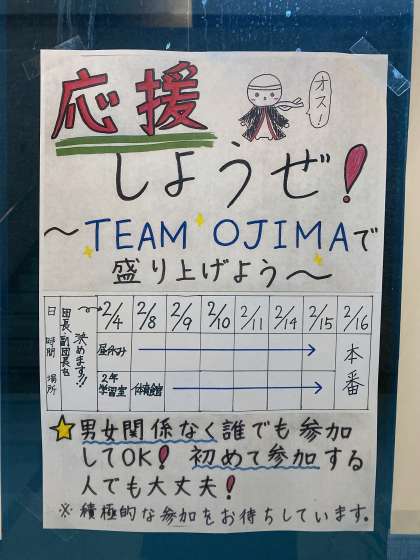 応援
オス!
しようぜ!
~TEAM OJIMAで
盛り上げよう~
日 団長・副団長も決めます!! 2/4 2/8 2/9 2/10 2/11 2/14 2/15 2/16
時間 昼休み 本番
場所 2年学習室 体育館
男女関係なく誰でも参加
してOK! 初めて参加する
人でも大丈夫!
※積極的な参加をお待ちしています。